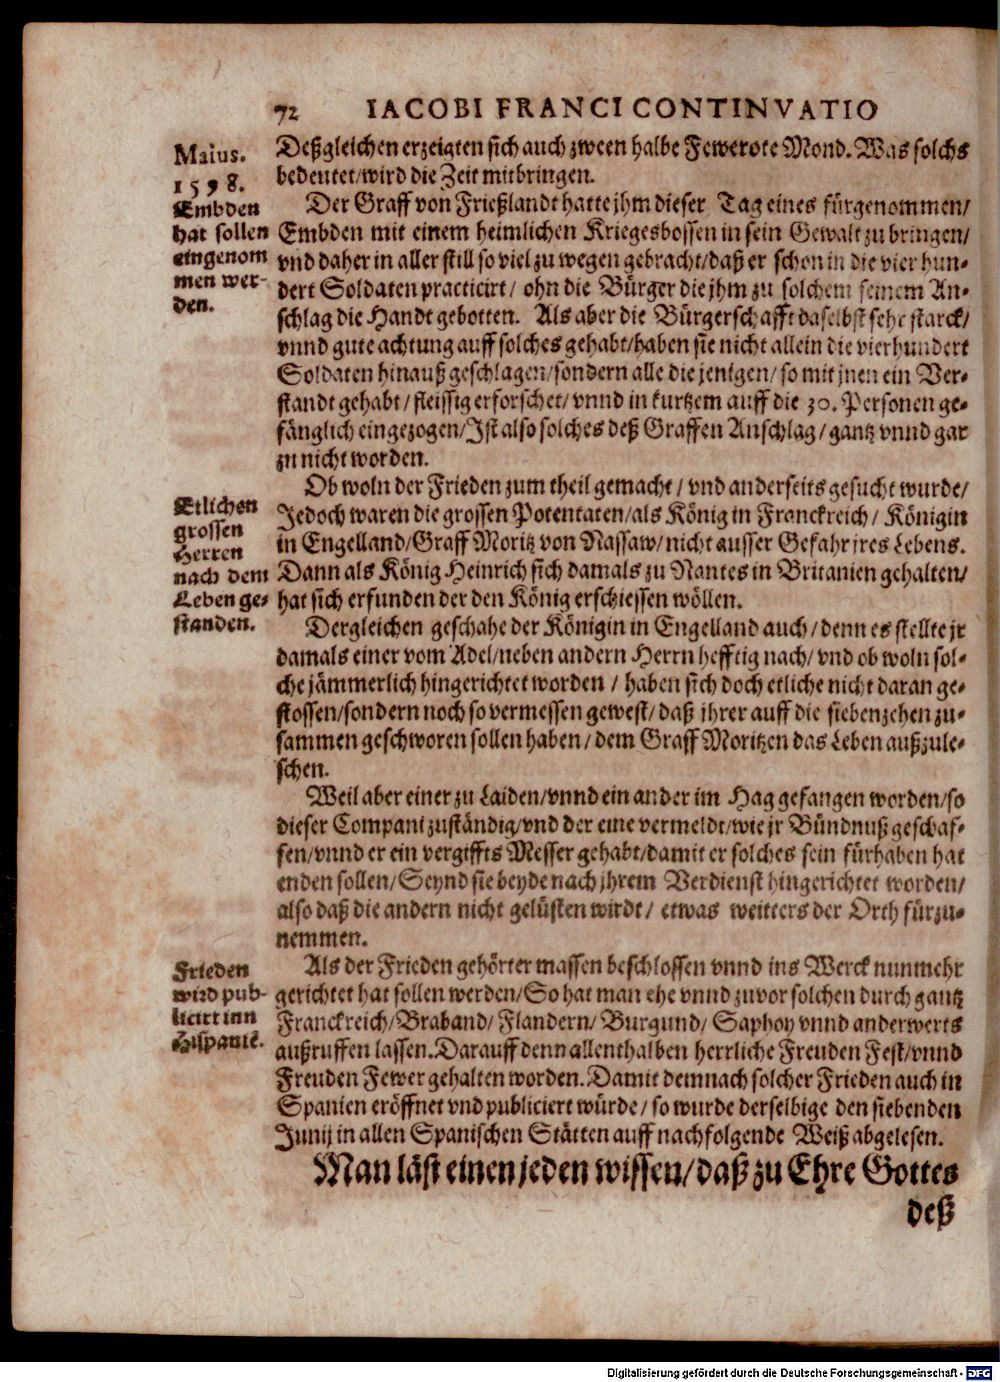 72 IACOBI FRANCI CONTINVATIO
Maius.
1598.
Embden
hat sollen
eingenom
men wer-
den.
Deßgleichen erzeigten sich auch zween halbe Fewerote Mond. Was solchs
bedeutet/wird die Zeit mitbringen.
Der Graff von Frießlandt hatte jhm dieser Tag eines fürgenommen/
Embden mit einem heimlichen Kriegesbossen in sein Gewalt zu bringen/
vnd daher in aller still so viel zu wegen gebracht/daß er schon in die vier hun-
dert Soldaten practicirt/ ohn die Bürger die jhm zu solchem seinem An-
schlag die Handt gebotten. Als aber die Bürgerschafft daselbst sehr starck/
vnnd gute achtung auff solches gehabt/haben sie nicht allein die vierhundert
Soldaten hinauß geschlagen/sondern alle die jenigen/ so mit jnen ein Ver-
standt gehabt/ fleissig erforschet/ vnnd in kurtzem auff die 30. Personen ge-
fänglich eingezogen/Ist also solches deß Graffen Anschlag/ gantz vnnd gar
zu nicht worden.
Etlichen
grossen
Herren
nach dem
Leben ge-
standen.
Ob woln der Frieden zum theil gemacht/ vnd anderseits gesucht wurde/
Jedoch waren die grossen Potentaten/als König in Franckreich/ Königin
in Engelland/Graff Moritz von Nassaw/nicht ausser Gefahr jres Lebens.
Dann als König Heinrich sich damals zu Nantes in Britanien gehalten/
hat sich erfunden der den König erschiessen wöllen.
Dergleichen geschahe der Königin in Engelland auch/denn es stellte jr
damals einer vom Adel/neben andern Herrn hefftig nach/ vnd ob woln sol-
che jämmerlich hingerichtet worden / haben sich doch etliche nicht daran ge-
stossen/sondern noch so vermessen gewest/ daß jhrer auff die siebenzehen zu-
sammen geschworen sollen haben/ dem Graff Moritzen das Leben außzule-
schen.
Weil aber einer zu Laiden/vnnd ein ander im Hag gefangen worden/so
dieser Compani zuständig/vnd der eine vermeldt/wie jr Bündnuß geschaf-
fen/vnnd er ein vergiffts Messer gehabt/damit er solches sein fürhaben hat
enden sollen/Seynd sie beyde nach jhrem Verdienst hingerichtet worden/
also daß die andern nicht gelüsten wirdt/ etwas weitters der Orth fürzu-
nemmen.
Frieden
wird pub-
licirt inn
Hispanie.
Als der Frieden gehörter massen beschlossen vnnd ins Werck nunmehr
gerichtet hat sollen werden/So hat man ehe vnnd zuvor solchen durch gantz
Franckreich/Braband/ Flandern/ Burgund/ Saphoy vnnd anderwerts
außruffen lassen.Darauff denn allenthalben herrliche Freuden Fest/vnnd
Freuden Fewer gehalten worden. Damit demnach solcher Frieden auch in
Spanien eröffnet vnd publiciert würde/ so wurde derselbige den siebenden
Junij in allen Spanischen Stätten auff nachfolgende Weiß abgelesen.
Man läst einen jeden wissen/daß zu Ehre Gottes
deß
Digitalisierung gefördert durch die Deutsche Forschungsgemeinschaft - DFG